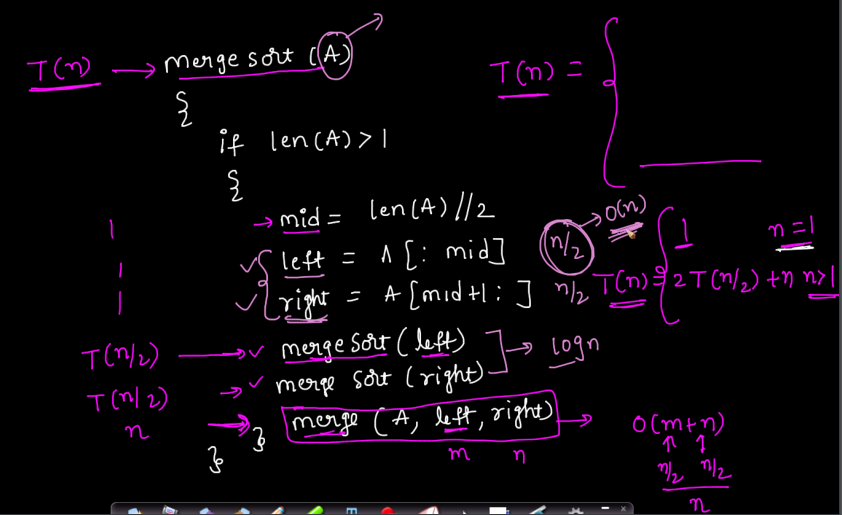 T(n) → merge sort (A)
{
if len(A) > 1
{
1 → mid = len(A)//2
1 ✓ left = A[: mid] n/2 → O(n)
1 ✓ right = A[mid+1 : ] n/2
T(n/2) → ✓ merge sort (left)
T(n/2) → ✓ merge sort (right) → logn
n → merge (A, left, right) → O(m+n)
m n
n/2 n/2
n
}
}
T(n) = {
T(n) = { 1 n=1
2T(n/2) + n n>1